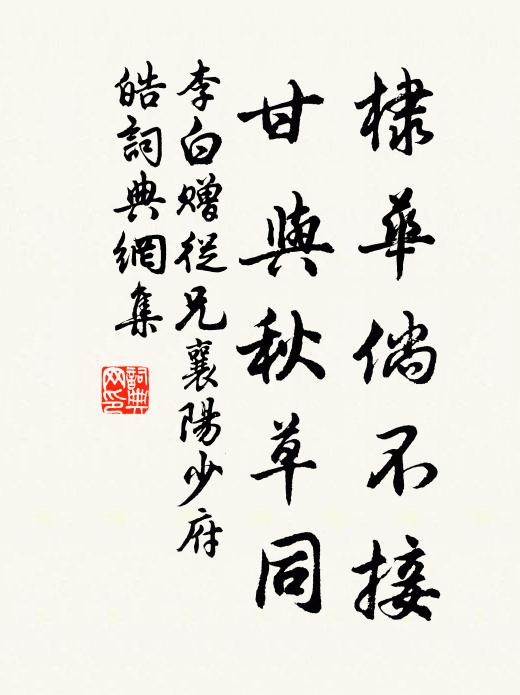 棣華倘不接
甘與秋草同
李白贈從兄襄陽少府
皓詞典網集
詞典
网印